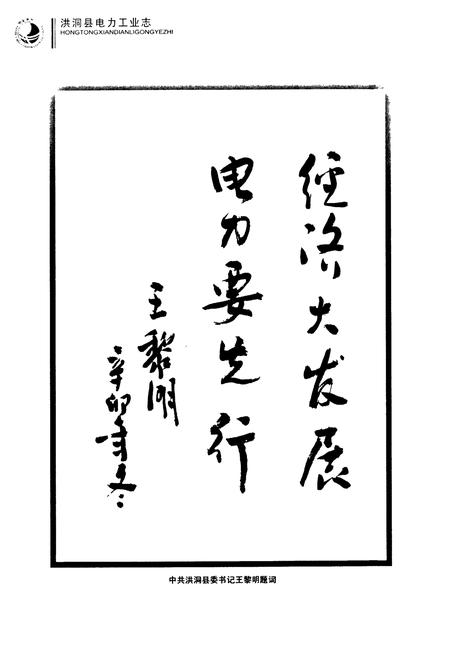 洪洞县电力工业志
HONGTONGXIANDIANLIGONGYEZHI
经济大发展
电力要先行
王黎明
辛卯年冬
中共洪洞县委书记王黎明题词